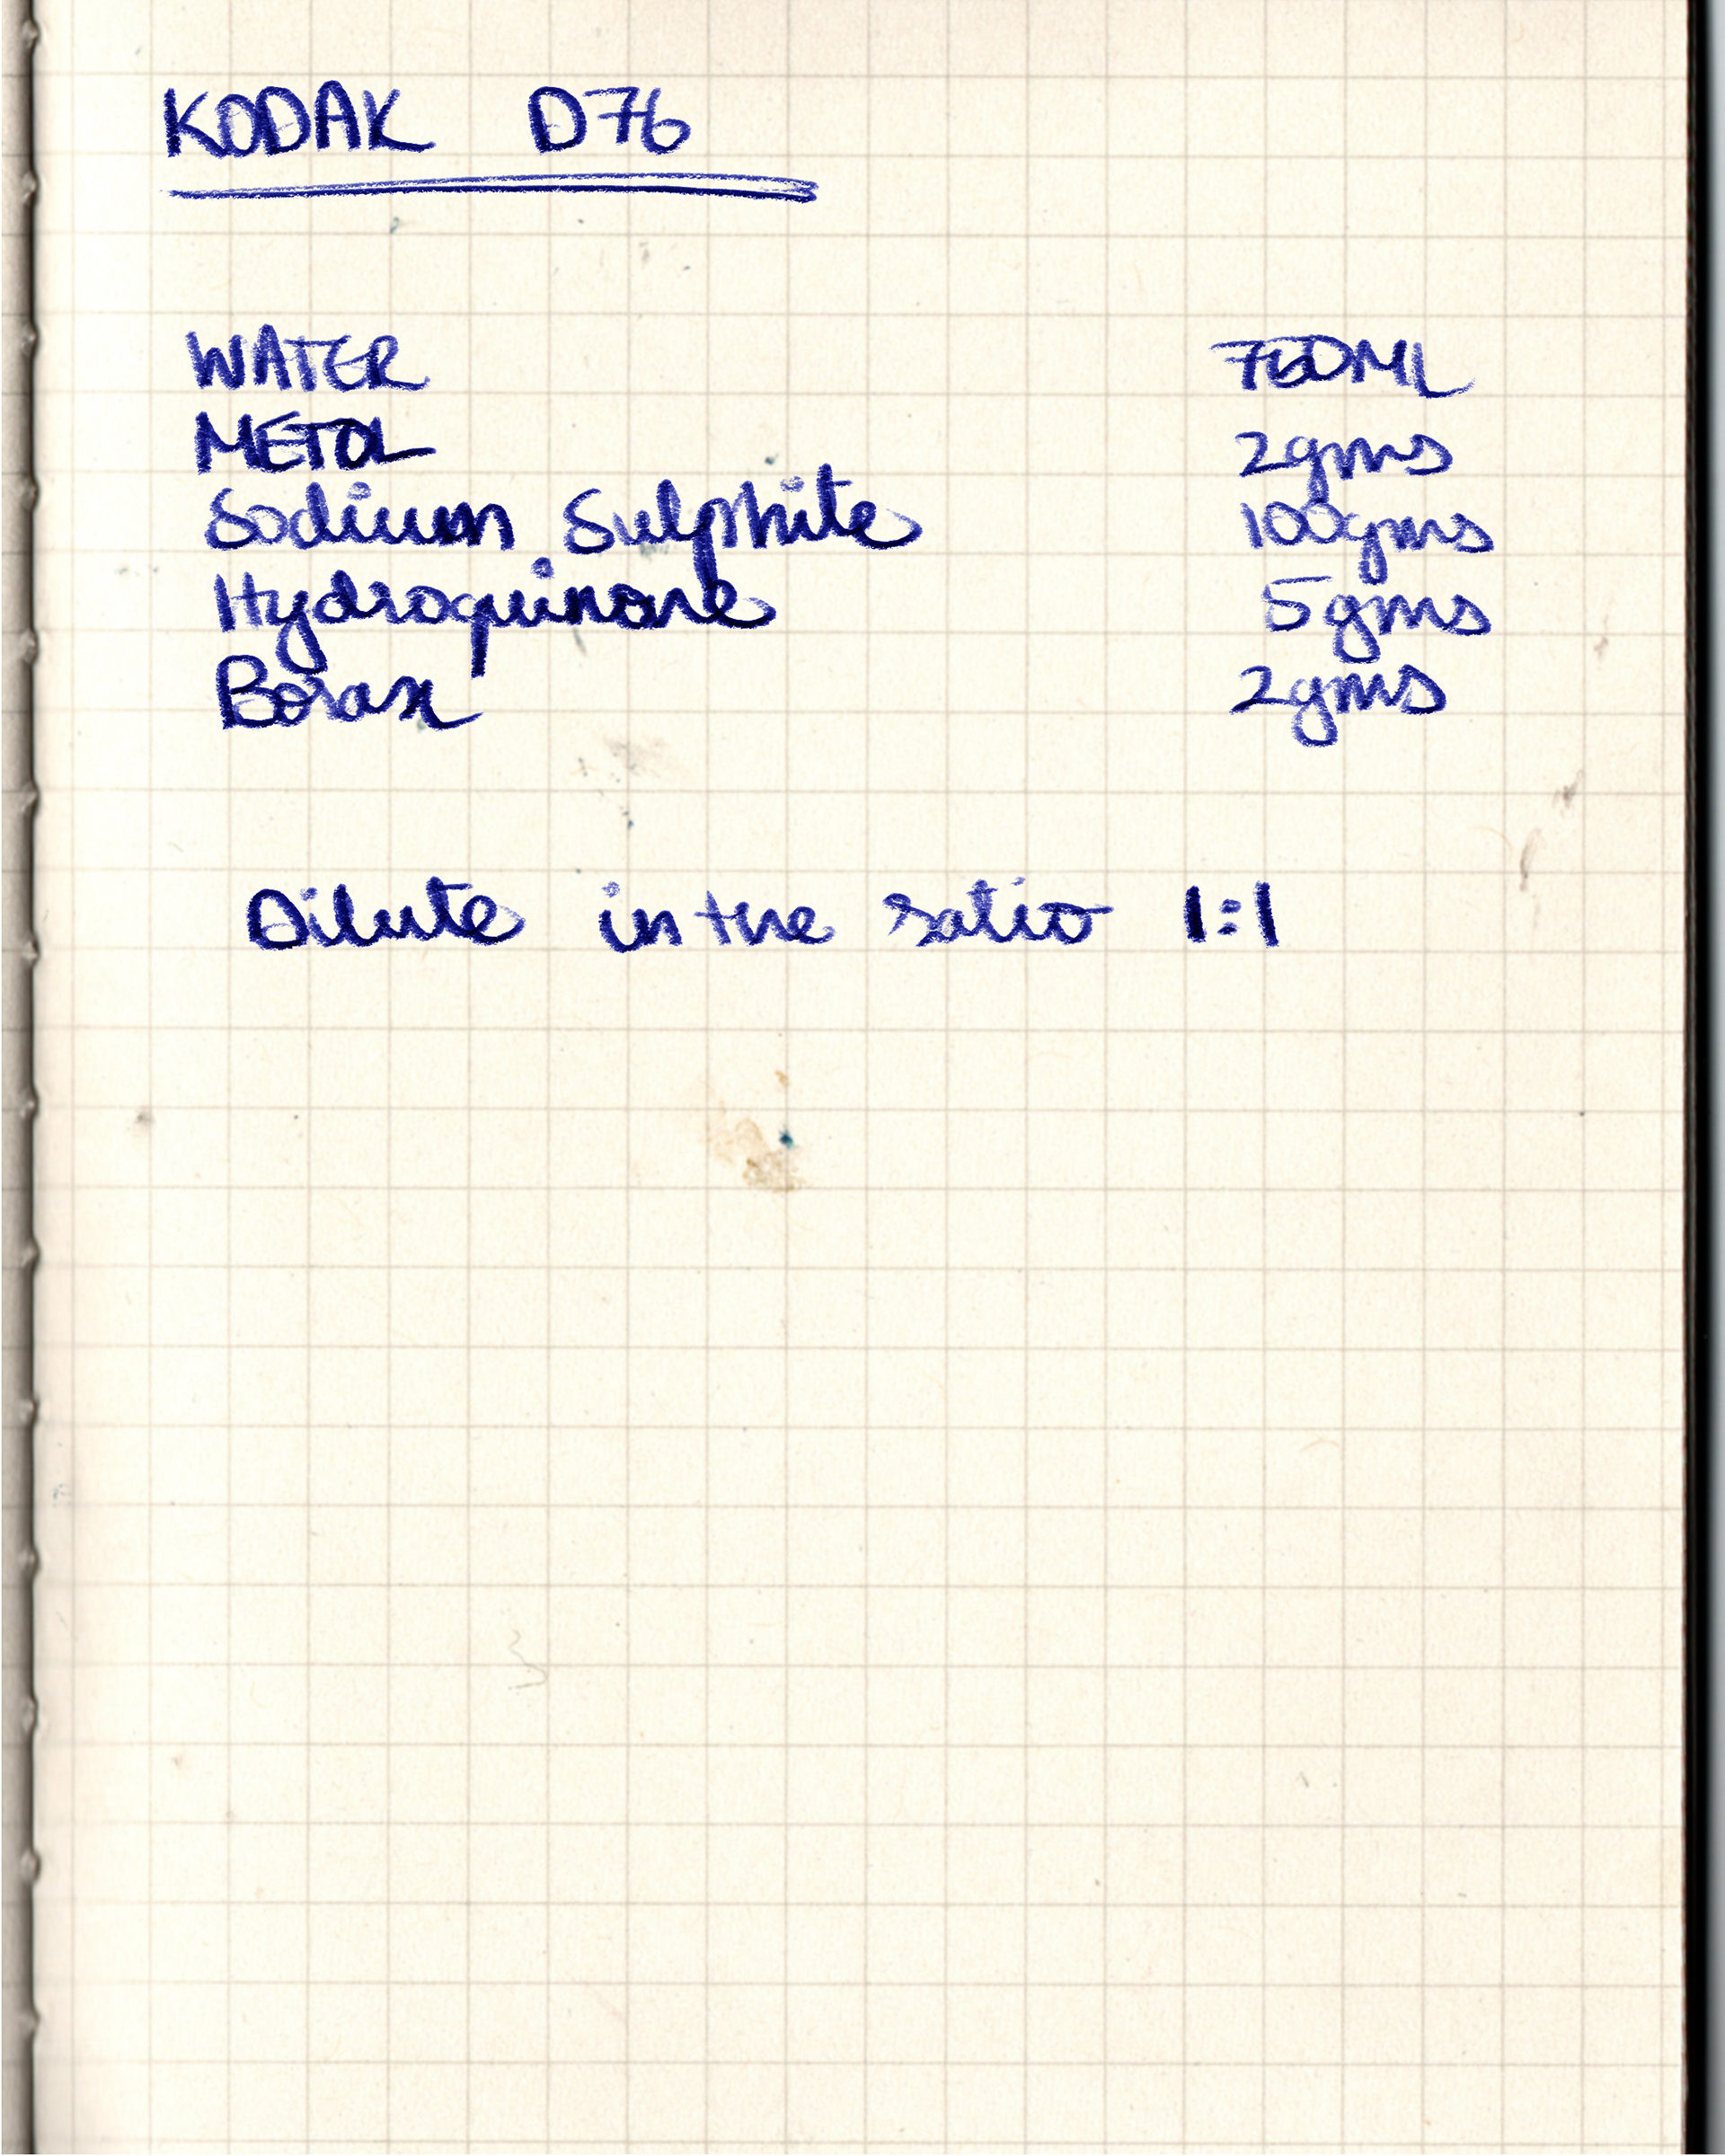 KODAK D76
WATER 760ML
METOL 2gms
Sodium Sulphite 100gms
Hydroquinone 5gms
Borax 2gms
Dilute in the ratio 1:1